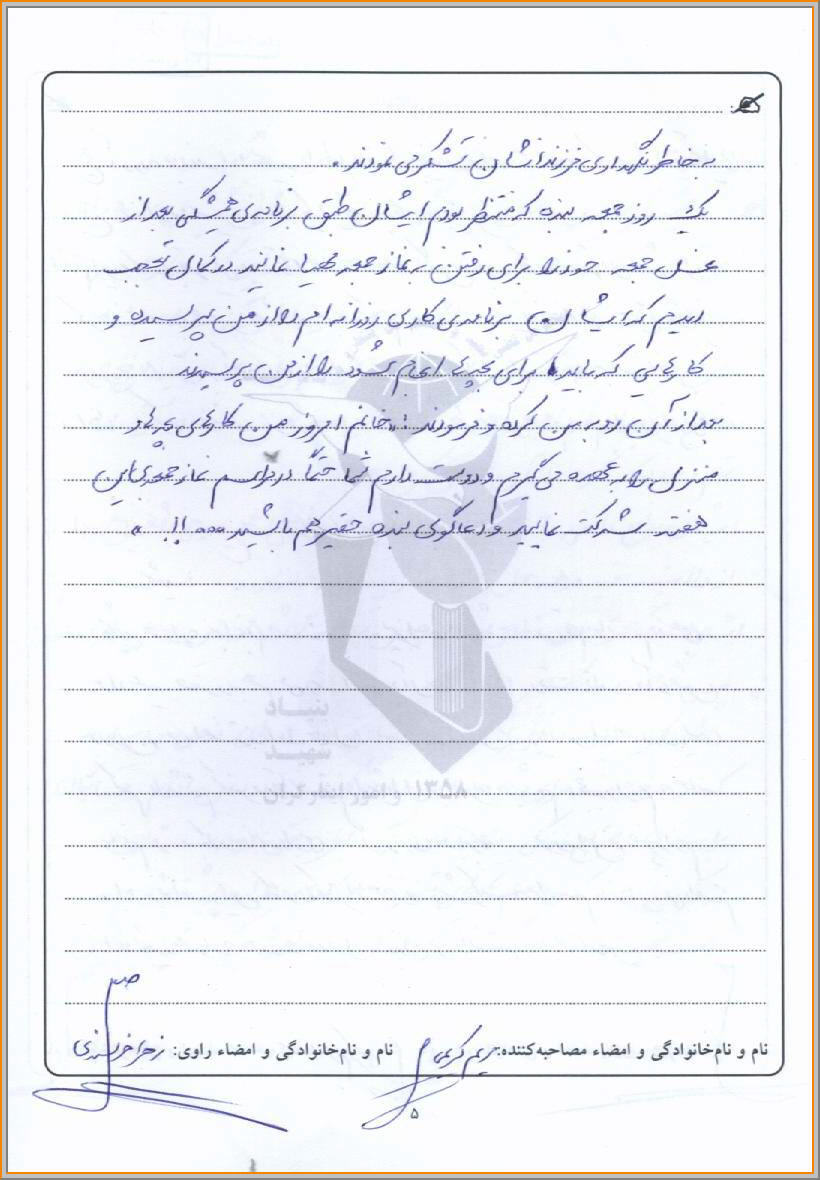 به خاطر نگهداری فرزندانشان تشکر می نمودند.
یک روز جمعه بنده که منتظر بودم ایشان طبق برنامه‌ی همیشگی بعد از
غسل جمعه خود را برای رفتن به نماز جمعه مهیا نمایند در کمال تعجب
دیدم که ایشان برنامه‌ی کاری روزانه ام را از من پرسیده و
کارهایی که باید برای بچه ها انجام بشود را از من پرسیدند
بعد از آن رو به من کرده و فرمودند: «خانم امروز من کارهای بچه ها و
منزل را به عهده می گیرم و دوست دارم شما حتماً در مراسم نماز جمعه‌ی این
هفته شرکت نمایید و دعاگوی بنده حقیر هم باشید...!!»
بنیاد
شهید
و امور ایثارگران ۱۳۵۸
نام و نام‌خانوادگی و امضاء مصاحبه‌کننده: مریم کریمی
نام و نام‌خانوادگی و امضاء راوی: زهرا خرسندی
۵